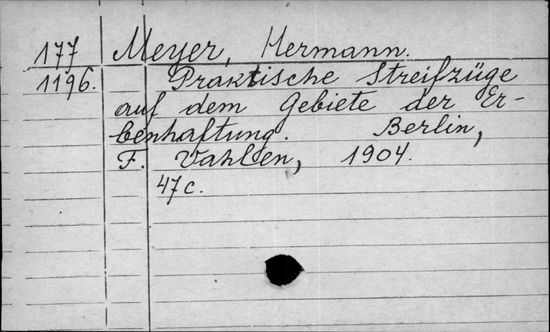 177 Meyer, Hermann.
1196. Praktische Streifzüge
auf dem Gebiete der Er-
benhaftung. Berlin,
F. Vahlen, 1904.
47c.